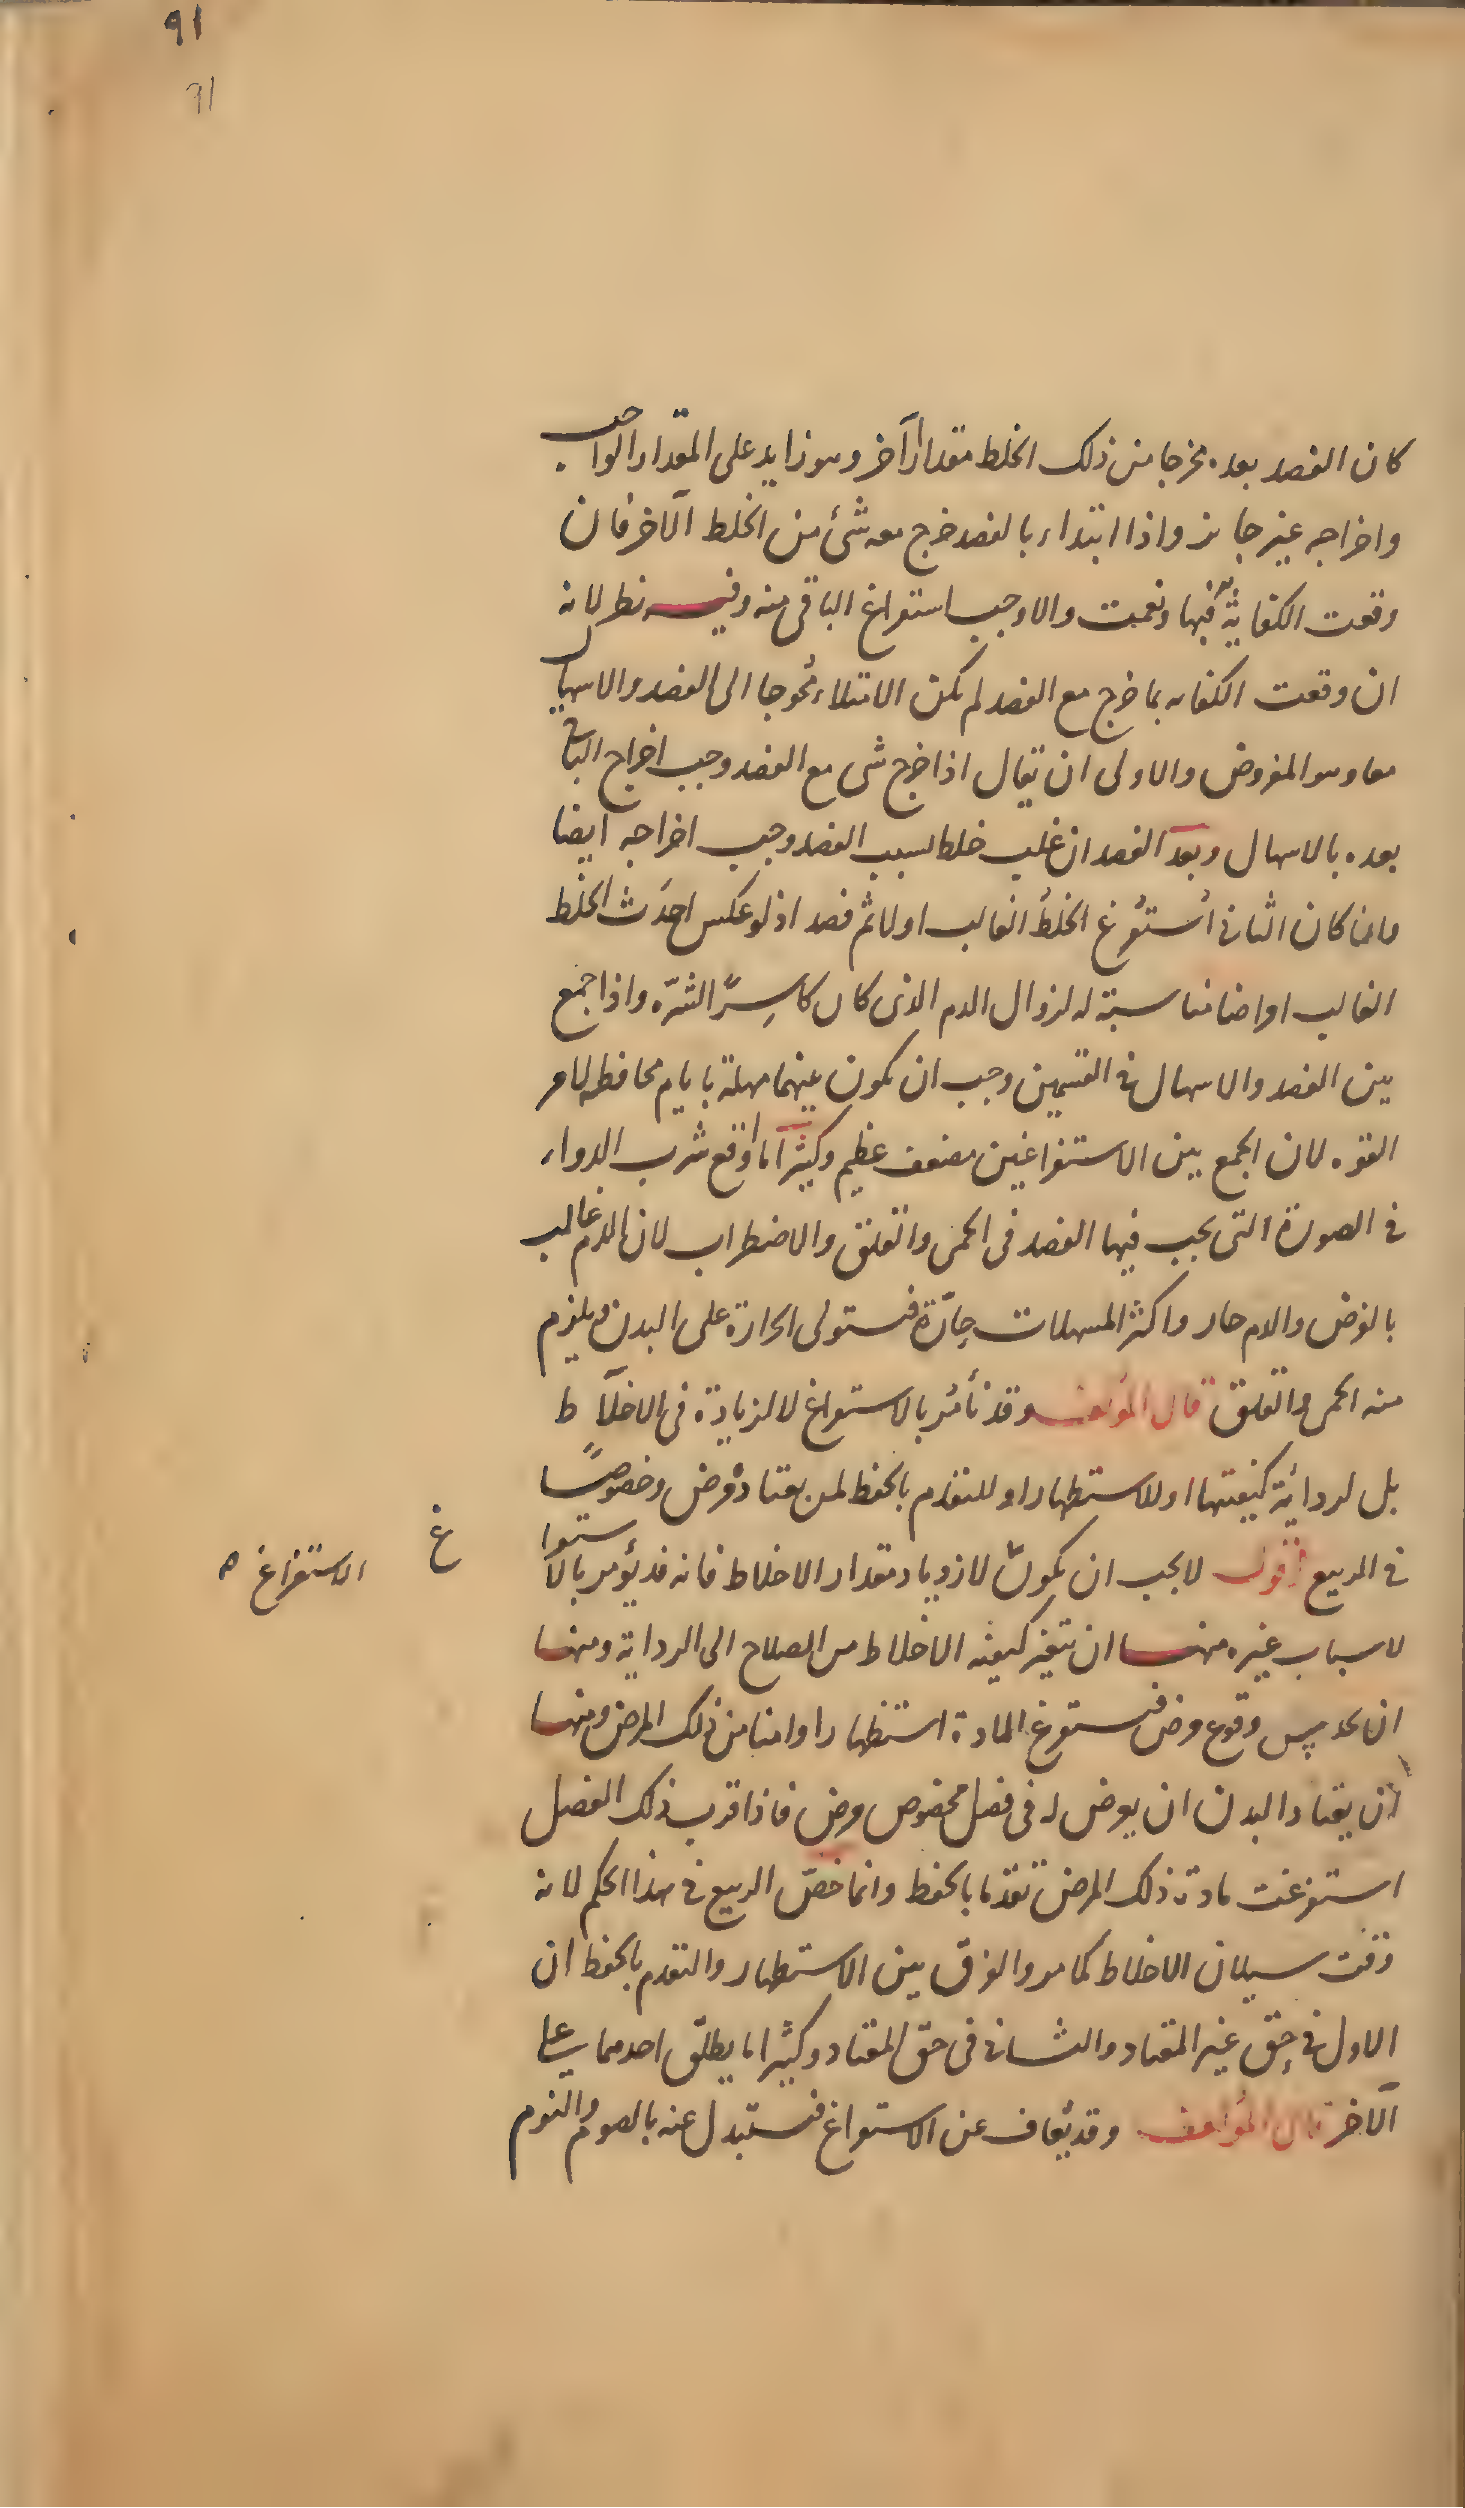 ٩١
٩١
كان الفصد بعده مخرجا من ذلك الخلط مقدارا آخر وهو زايد على المقدار الواجب
واخراجه غير جايز واذا ابتداء بالفصد خرج معه شئ من الخلط الآخر فان
وقعت الكفاية فبها ونعمت والا وجب استفراغ الباقى منه وفيه نظر لانه
ان وقعت الكفايه بما خرج مع الفصد لم يكن الامتلاء محوجا الى الفصد والاسهال
معا وهو المفروض والاولى ان يقال اذا خرج شى مع الفصد وجب اخراج الباقى
بعده بالاسهال وبعد الفصد ان غلب خلط بسبب الفصد وجب اخراجه ايضا
وانما كان الثانى استفرغ الخلط الغالب اولا ثم فصد اذ لو عكس احدث الخلط
الغالب امراضا مناسبة له لزوال الدم الذى كان كاسرا لشره واذا جمع
بين الفصد والاسهال فى القسمين وجب ان يكون بينهما مهلة بايام محافظه لامر
القوه لان الجمع بين الاستفراغين مضعف عظيم وكثيرا ما اوقع شرب الدواء
فى الصورة التى يجب فيها الفصد فى الحمى والقلق والاضطراب لان الدم غالب
بالفرض والدم حار واكثر المسهلات حارة فتستولى الحرارة على البدن ويلزم
منه الحمى والقلق قال المؤلف وقد نأمر بالاستفراغ لا لزيادة فى الاخلاط
بل لرداءة كيفيتها او للاستظهار او للتقدم بالحفظ لمن يعتاده مرض وخصوصا
فى الربيع اقول لا يجب ان يكون لازدياد مقدار الاخلاط فانه قد يؤمر بالاستفرا
غ
الاستفراغ ه
لاسباب غيره منها ان تتغير كيفيه الاخلاط من الصلاح الى الرداية ومنها
ان يحدس وقوع مرض فتستفرغ المادة استظهارا وامنا من ذلك المرض ومنها
ان يعتاد البدن ان يعرض له فى فصل مخصوص مرض فاذا قرب ذلك الفصل
استفرغت مادة ذلك المرض تقدما بالحفظ وانما خص الربيع فى هذا الحكم لانه
وقت سيلان الاخلاط كما مر والفرق بين الاستظهار والتقدم بالحفظ ان
الاول فى حق غير المعتاد والثانى فى حق المعتاد وكثيرا ما يطلق احدهما على
الآخر قال المؤلف وقد يعاف عن الاستفراغ فتستبدل عنه بالصوم والنوم